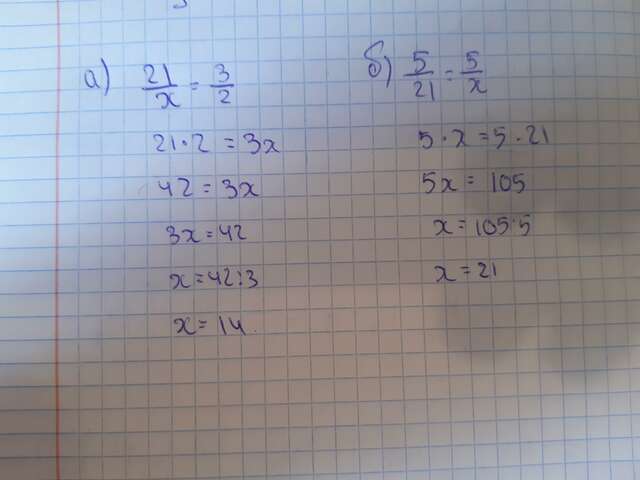 а) 21/x = 3/2
21·2 = 3x
42 = 3x
3x = 42
x = 42:3
x = 14
б) 5/21 = 5/x
5·x = 5·21
5x = 105
x = 105:5
x = 21